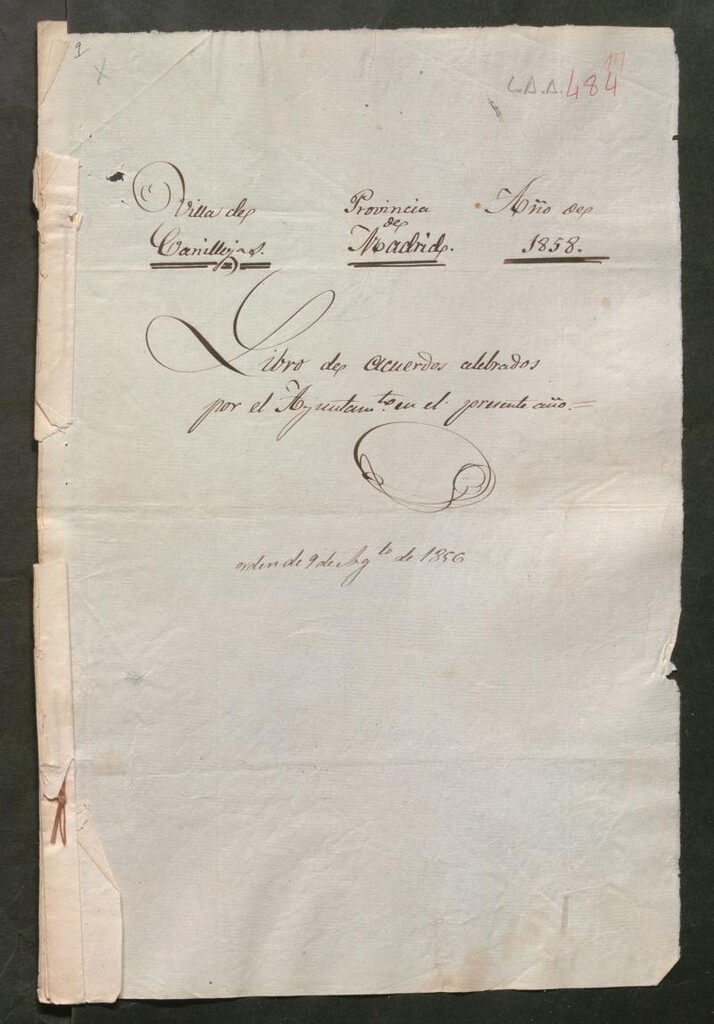 9
X
L.A.A. 484
Villa de Provincia Año de
de
Canillejas. Madrid. 1858.
Libro de acuerdos celebrados
por el Ayuntam.to en el presente año.=
orden de 9 de Ag.to de 1856